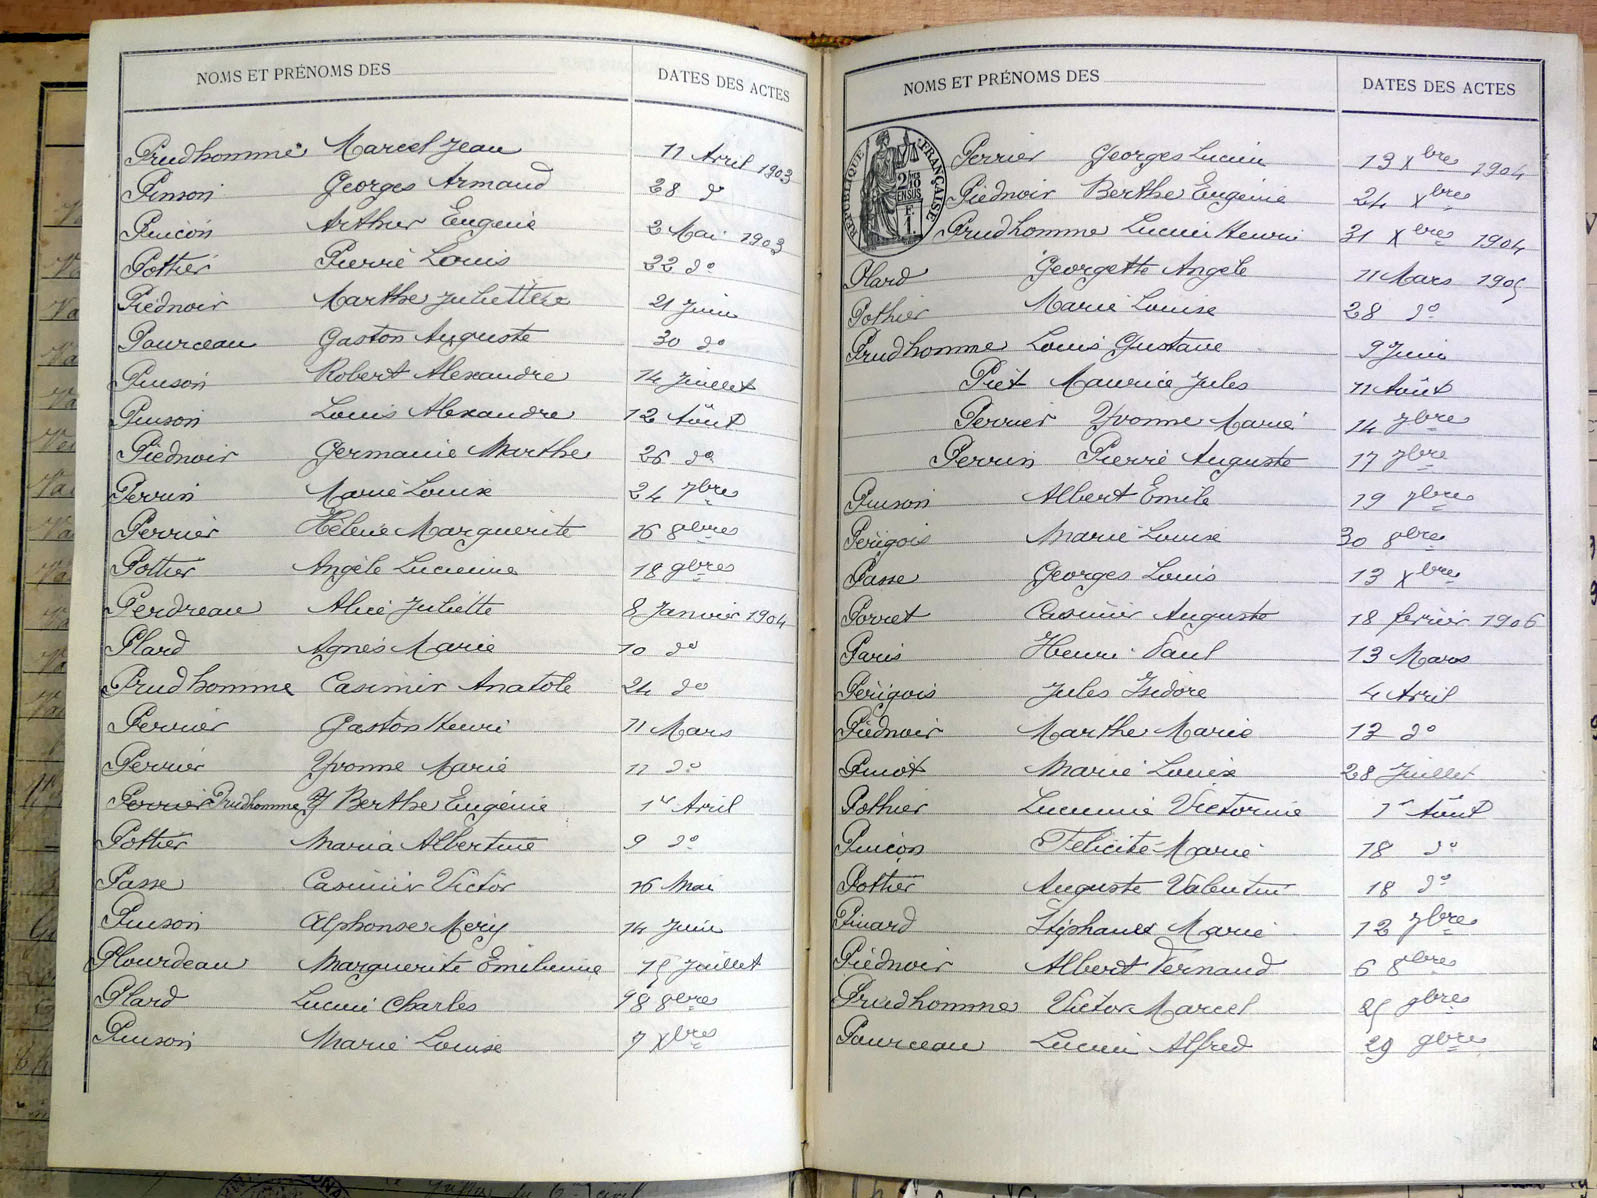 NOMS ET PRÉNOMS DES
DATES DES ACTES
Prudhomme Marcel Jean 11 Avril 1903
Pinson Georges Armand 28 do
Pinçon Arthur Eugène 2 Mai 1903
Pottier Pierre Louis 22 do
Piednoir Marthe Juliette 21 Juin
Pourceau Gaston Auguste 30 do
Pinson Robert Alexandre 14 Juillet
Pinson Louis Alexandre 12 Août
Piednoir Germaine Marthe 26 do
Perrin Marie Louise 24 7bre
Perrier Hélène Marguerite 16 8bres
Pottier Angèle Lucienne 18 9bres
Perdreau Alice Juliette 8 Janvier 1904
Plard Agnès Marie 10 do
Prudhomme Casimir Anatole 24 do
Perrier Gaston Henri 11 Mars
Perrier Yvonne Marie 11 do
Perrier Prudhomme Berthe Eugénie 1er Avril
Pottier Maria Albertine 9 do
Passe Casimir Victor 16 Mai
Pinson Alphonse Mery 14 Juin
Plourdeau Marguerite Emilienne 15 Juillet
Plard Lucien Charles 18 8bres
Pinson Marie Louise 7 Xbres
NOMS ET PRÉNOMS DES
DATES DES ACTES
RÉPUBLIQUE FRANÇAISE
2/10 EN SUS
F. 1.
Perrier Georges Lucien 13 Xbres 1904
Piednoir Berthe Eugénie 24 Xbres
Prudhomme Lucien Henri 31 Xbres 1904
Plard Georgette Angèle 11 Mars 1905
Pothier Marie Louise 28 do
Prudhomme Louis Gustave 9 Juin
Piet Maurice Jules 11 Août
Perrier Yvonne Marie 14 7bres
Perrin Pierre Auguste 17 7bre
Pinson Albert Emile 19 7bres
Périgois Marie Louise 30 8bres
Passe Georges Louis 13 Xbres
Porret Casimir Auguste 18 février 1906
Paris Henri Paul 13 Mars
Périgois Jules Isidore 4 Avril
Piednoir Marthe Marie 12 do
Pinot Marie Louise 28 Juillet
Pothier Lucienne Victorine 1er Août
Pinçon Félicité Marie 18 do
Pottier Auguste Valentin 18 do
Pinard Marie 12 7bres
Piednoir Albert Fernand 6 8bres
Prudhomme Victor Marcel 25 9bres
Pourceau Lucien Alfred 29 9bres